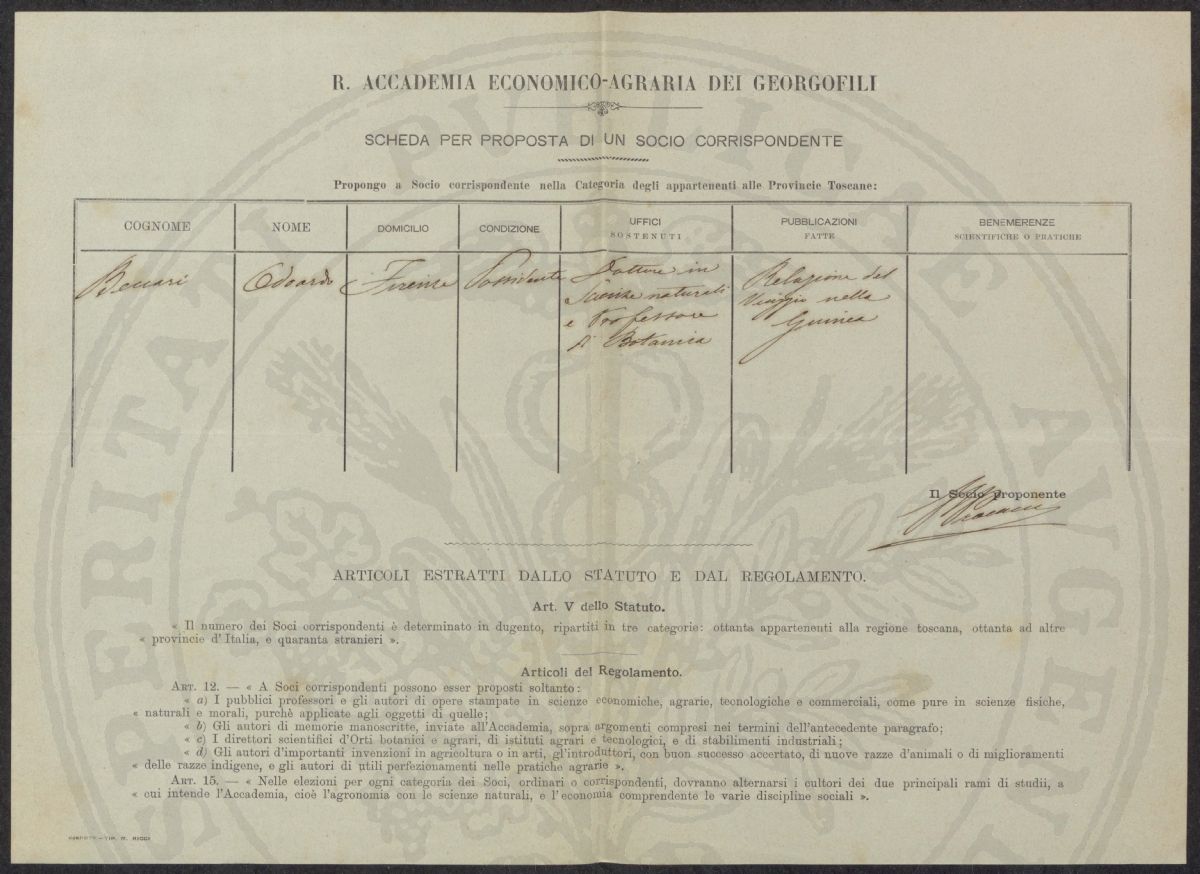 R. ACCADEMIA ECONOMICO-AGRARIA DEI GEORGOFILI
SCHEDA PER PROPOSTA DI UN SOCIO CORRISPONDENTE
Propongo a Socio corrispondente nella Categoria degli appartenenti alle Provincie Toscane:
COGNOME
NOME
DOMICILIO
CONDIZIONE
UFFICI
SOSTENUTI
PUBBLICAZIONI
FATTE
BENEMERENZE
SCIENTIFICHE O PRATICHE
Beccari
Odoardo
Firenze
Possidente
Dottore in
Scienze naturali
e Professore
di Botanica
Relazione del
Viaggio nella
Guinea
Il Socio proponente
ARTICOLI ESTRATTI DALLO STATUTO E DAL REGOLAMENTO.
Art. V dello Statuto.
« Il numero dei Soci corrispondenti è determinato in dugento, ripartiti in tre categorie: ottanta appartenenti alla regione toscana, ottanta ad altre
« provincie d'Italia, e quaranta stranieri ».
Articoli del Regolamento.
ART. 12. — « A Soci corrispondenti possono esser proposti soltanto:
« a) I pubblici professori e gli autori di opere stampate in scienze economiche, agrarie, tecnologiche e commerciali, come pure in scienze fisiche,
« naturali e morali, purchè applicate agli oggetti di quelle;
« b) Gli autori di memorie manoscritte, inviate all'Accademia, sopra argomenti compresi nei termini dell'antecedente paragrafo;
« c) I direttori scientifici d'Orti botanici e agrari, di istituti agrari e tecnologici, e di stabilimenti industriali;
« d) Gli autori d'importanti invenzioni in agricoltura o in arti, gl'introduttori, con buon successo accertato, di nuove razze d'animali o di miglioramenti
« delle razze indigene, e gli autori di utili perfezionamenti nelle pratiche agrarie ».
ART. 15. — « Nelle elezioni per ogni categoria dei Soci, ordinari o corrispondenti, dovranno alternarsi i cultori dei due principali rami di studii, a
« cui intende l'Accademia, cioè l'agronomia con le scienze naturali, e l'economia comprendente le varie discipline sociali ».
TIP. M. RICCI